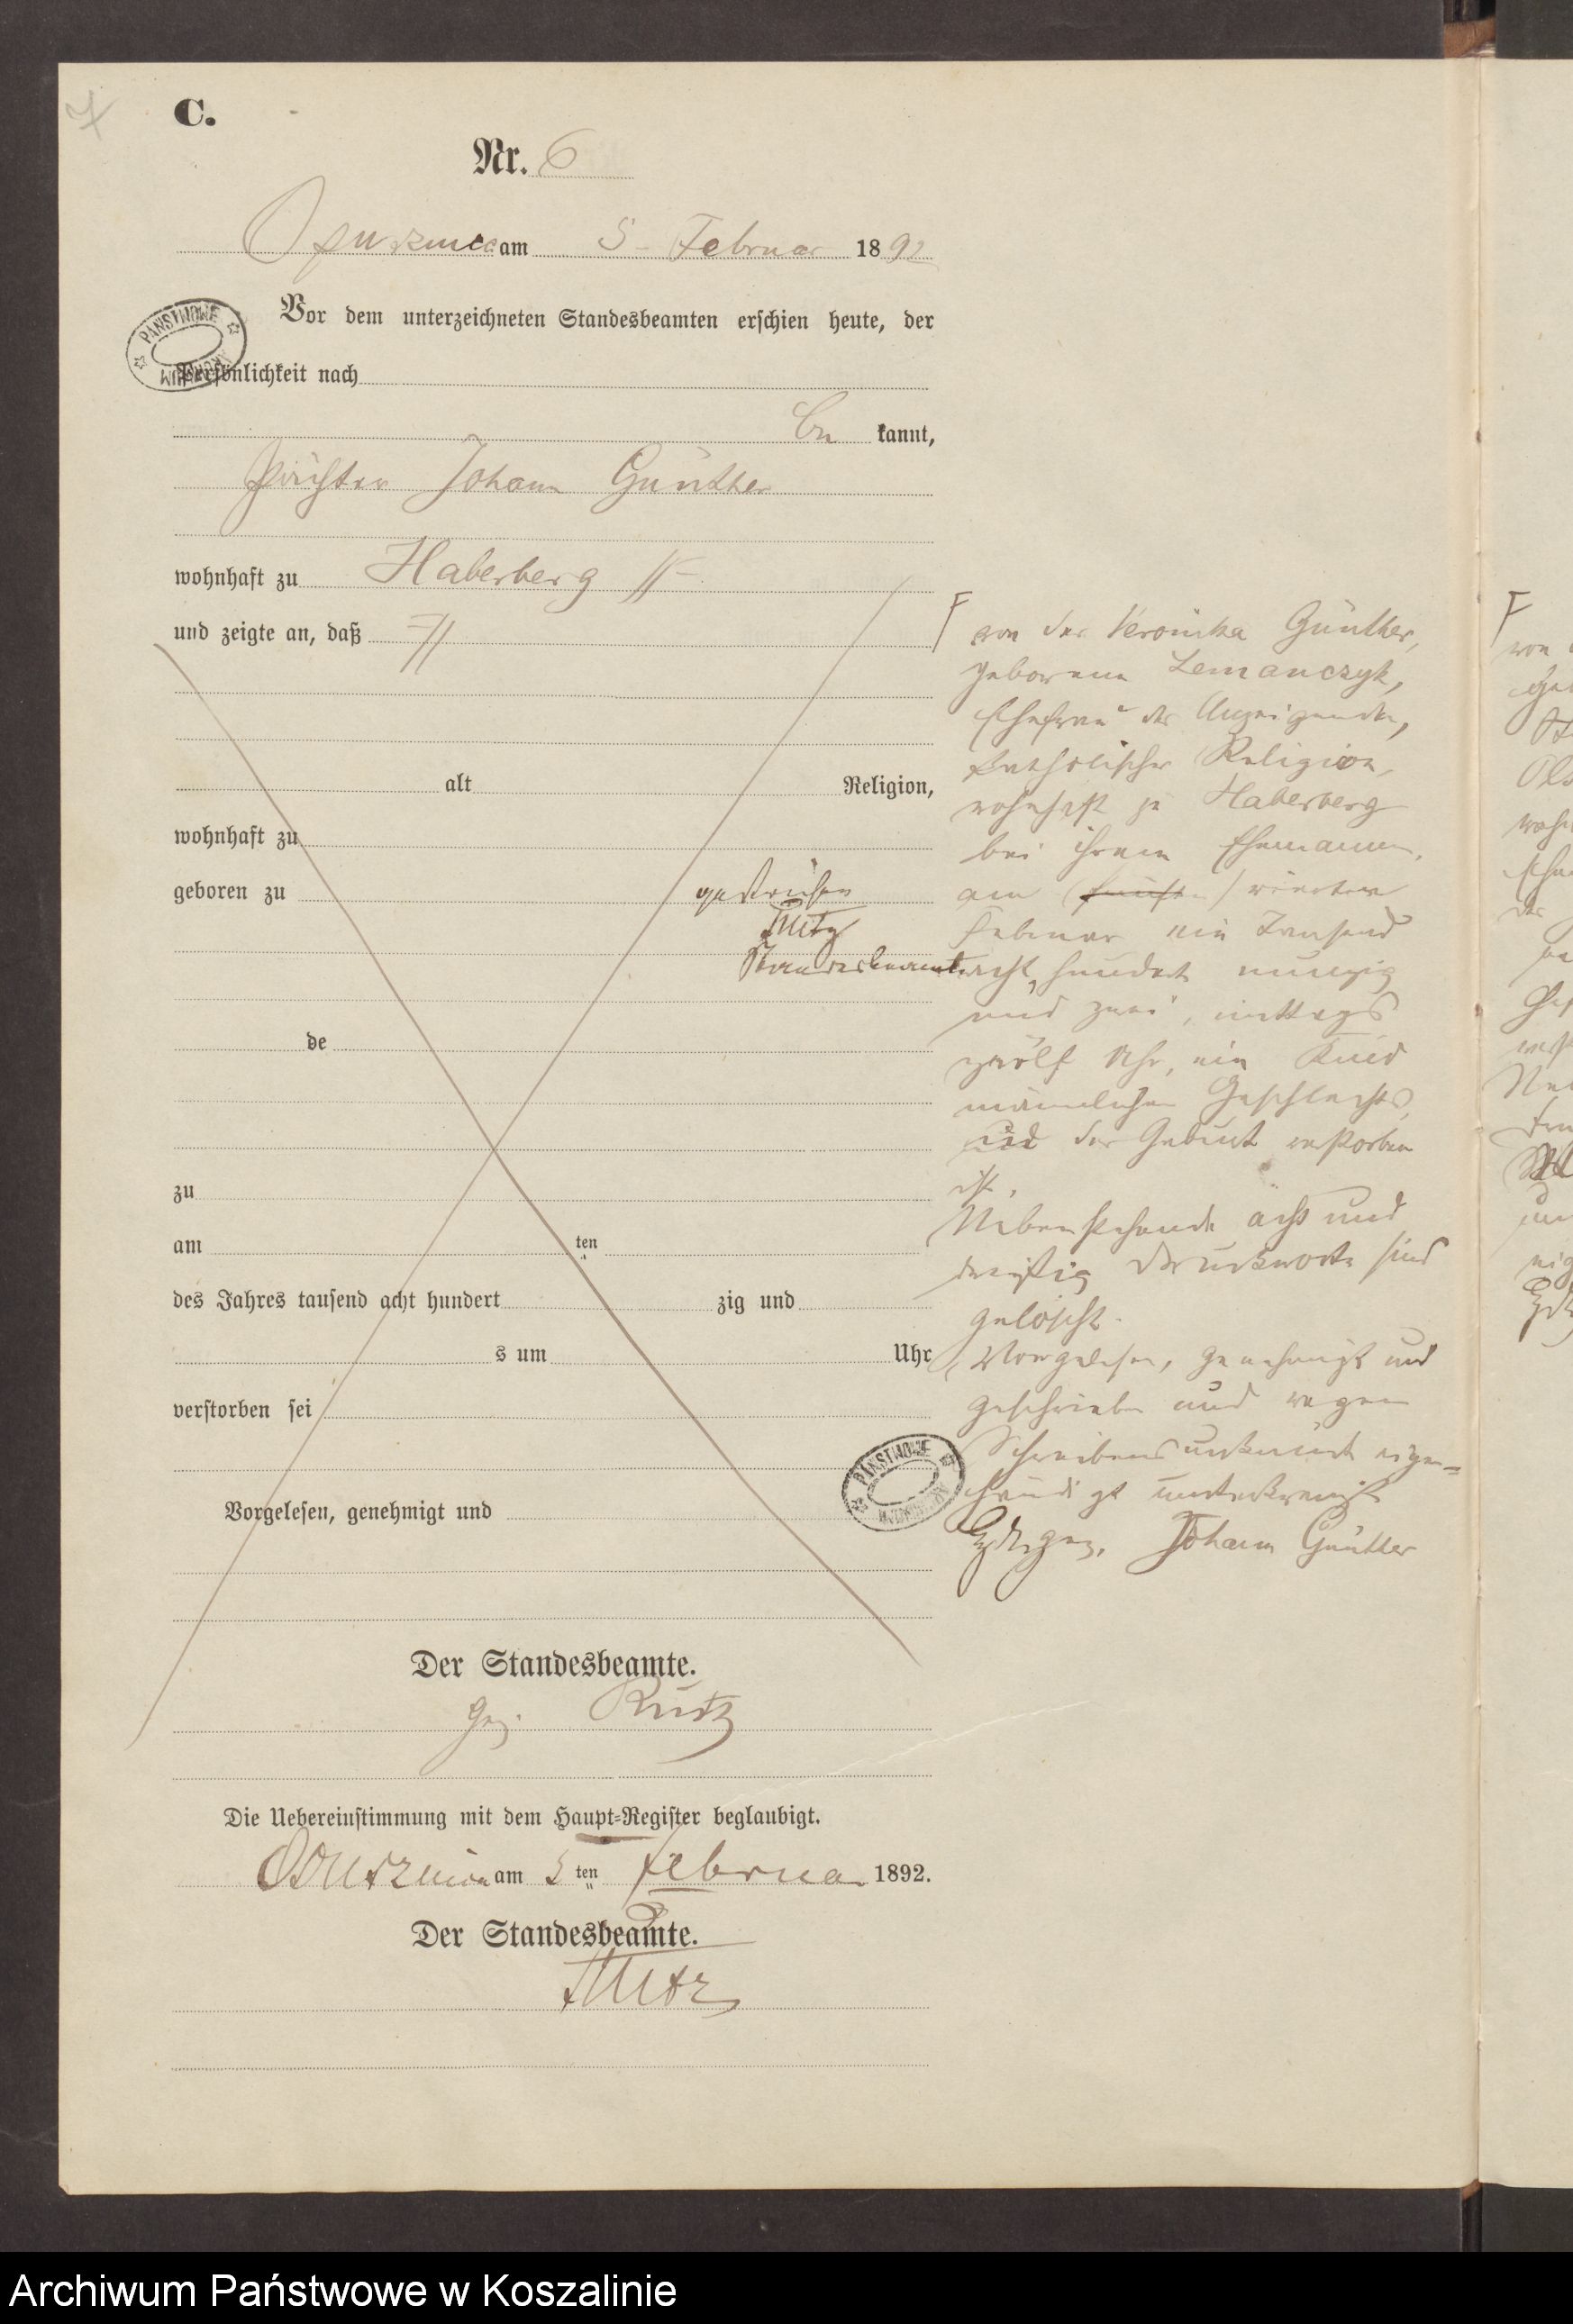 C.
Nr. 6
am 5 Februar 1892
Vor dem unterzeichneten Standesbeamten erschien heute, der
Persönlichkeit nach
be kannt,
Pächter Johann Günther
wohnhaft zu Haberberg
und zeigte an, daß
alt Religion,
wohnhaft zu
geboren zu
gestrichen
Standesbeamter
de
zu
am ten
des Jahres tausend acht hundert zig und
s um Uhr
verstorben sei
Vorgelesen, genehmigt und
von der Veronika Günther,
geborene Lemanczyk,
Ehefrau des Anzeigenden,
katholischer Religion,
wohnhaft zu Haberberg
bei ihrem Ehemanne,
am vierten
Februar ein Tausend
acht hundert neunzig
und zwei, mittags
zwölf Uhr, ein Kind
männlichen Geschlechts,
in der Geburt verstorben
ist.
Nebenstehende acht und
dreißig Druckworte sind
gelöscht.
Vorgelesen, genehmigt und
geschrieben und wegen
Schreibensunkunde eigen=
händigt unterkreuzt
Johann Günther
Der Standesbeamte.
gez.
Die Uebereinstimmung mit dem Haupt=Register beglaubigt.
am 5 ten Februar 1892.
Der Standesbeamte.
PAŃSTWOWE ARCHIWUM
PAŃSTWOWE ARCHIWUM
Archiwum Państwowe w Koszalinie